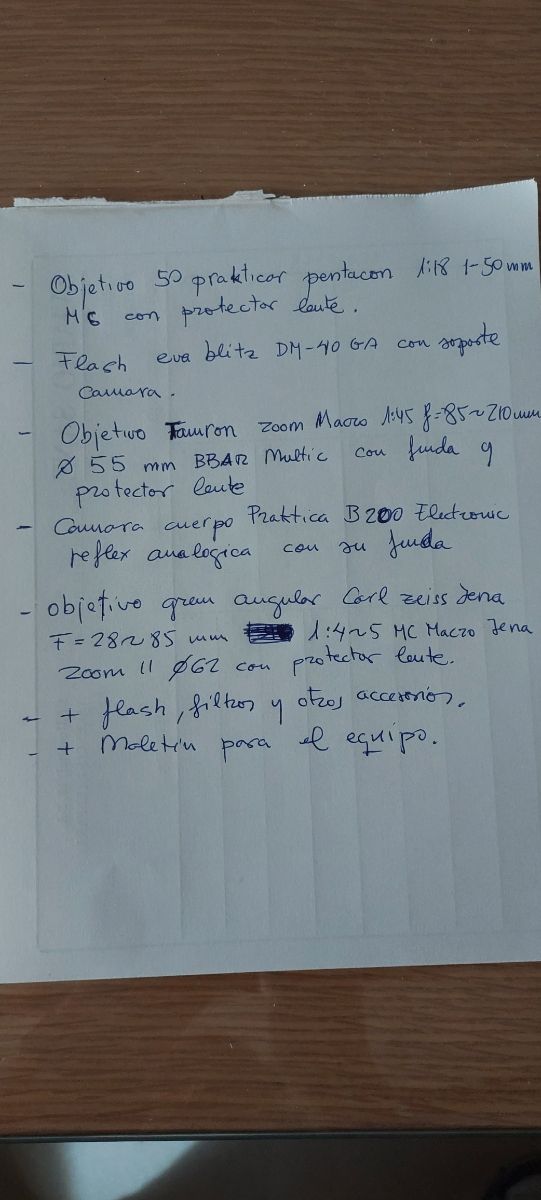 - Objetivo 50 prakticar pentacon 1:18 1-50mm
MC con protector lente.
- Flash eva blitz DM-40 GA con soporte
camara.
- Objetivo Tamron zoom Macro 1:45 f=85~210mm
Ø 55 mm BBAR Multic con funda y
protector lente
- Camara cuerpo Praktica B200 Electronic
reflex analogica con su funda
- objetivo gran angular Carl zeiss Jena
F=28~85 mm 1:4~5 MC Macro Jena
Zoom II Ø62 con protector lente.
- + flash, filtros y otros accesorios.
- + Maletín para el equipo.